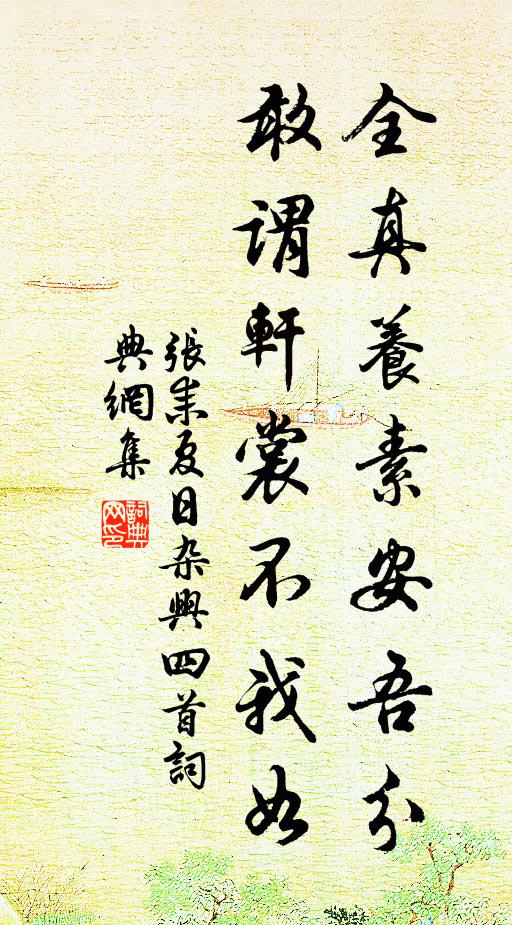 全真養素安吾分
敢謂軒裳不我如
張耒夏日杂興四首詞
典網集
詞典網印